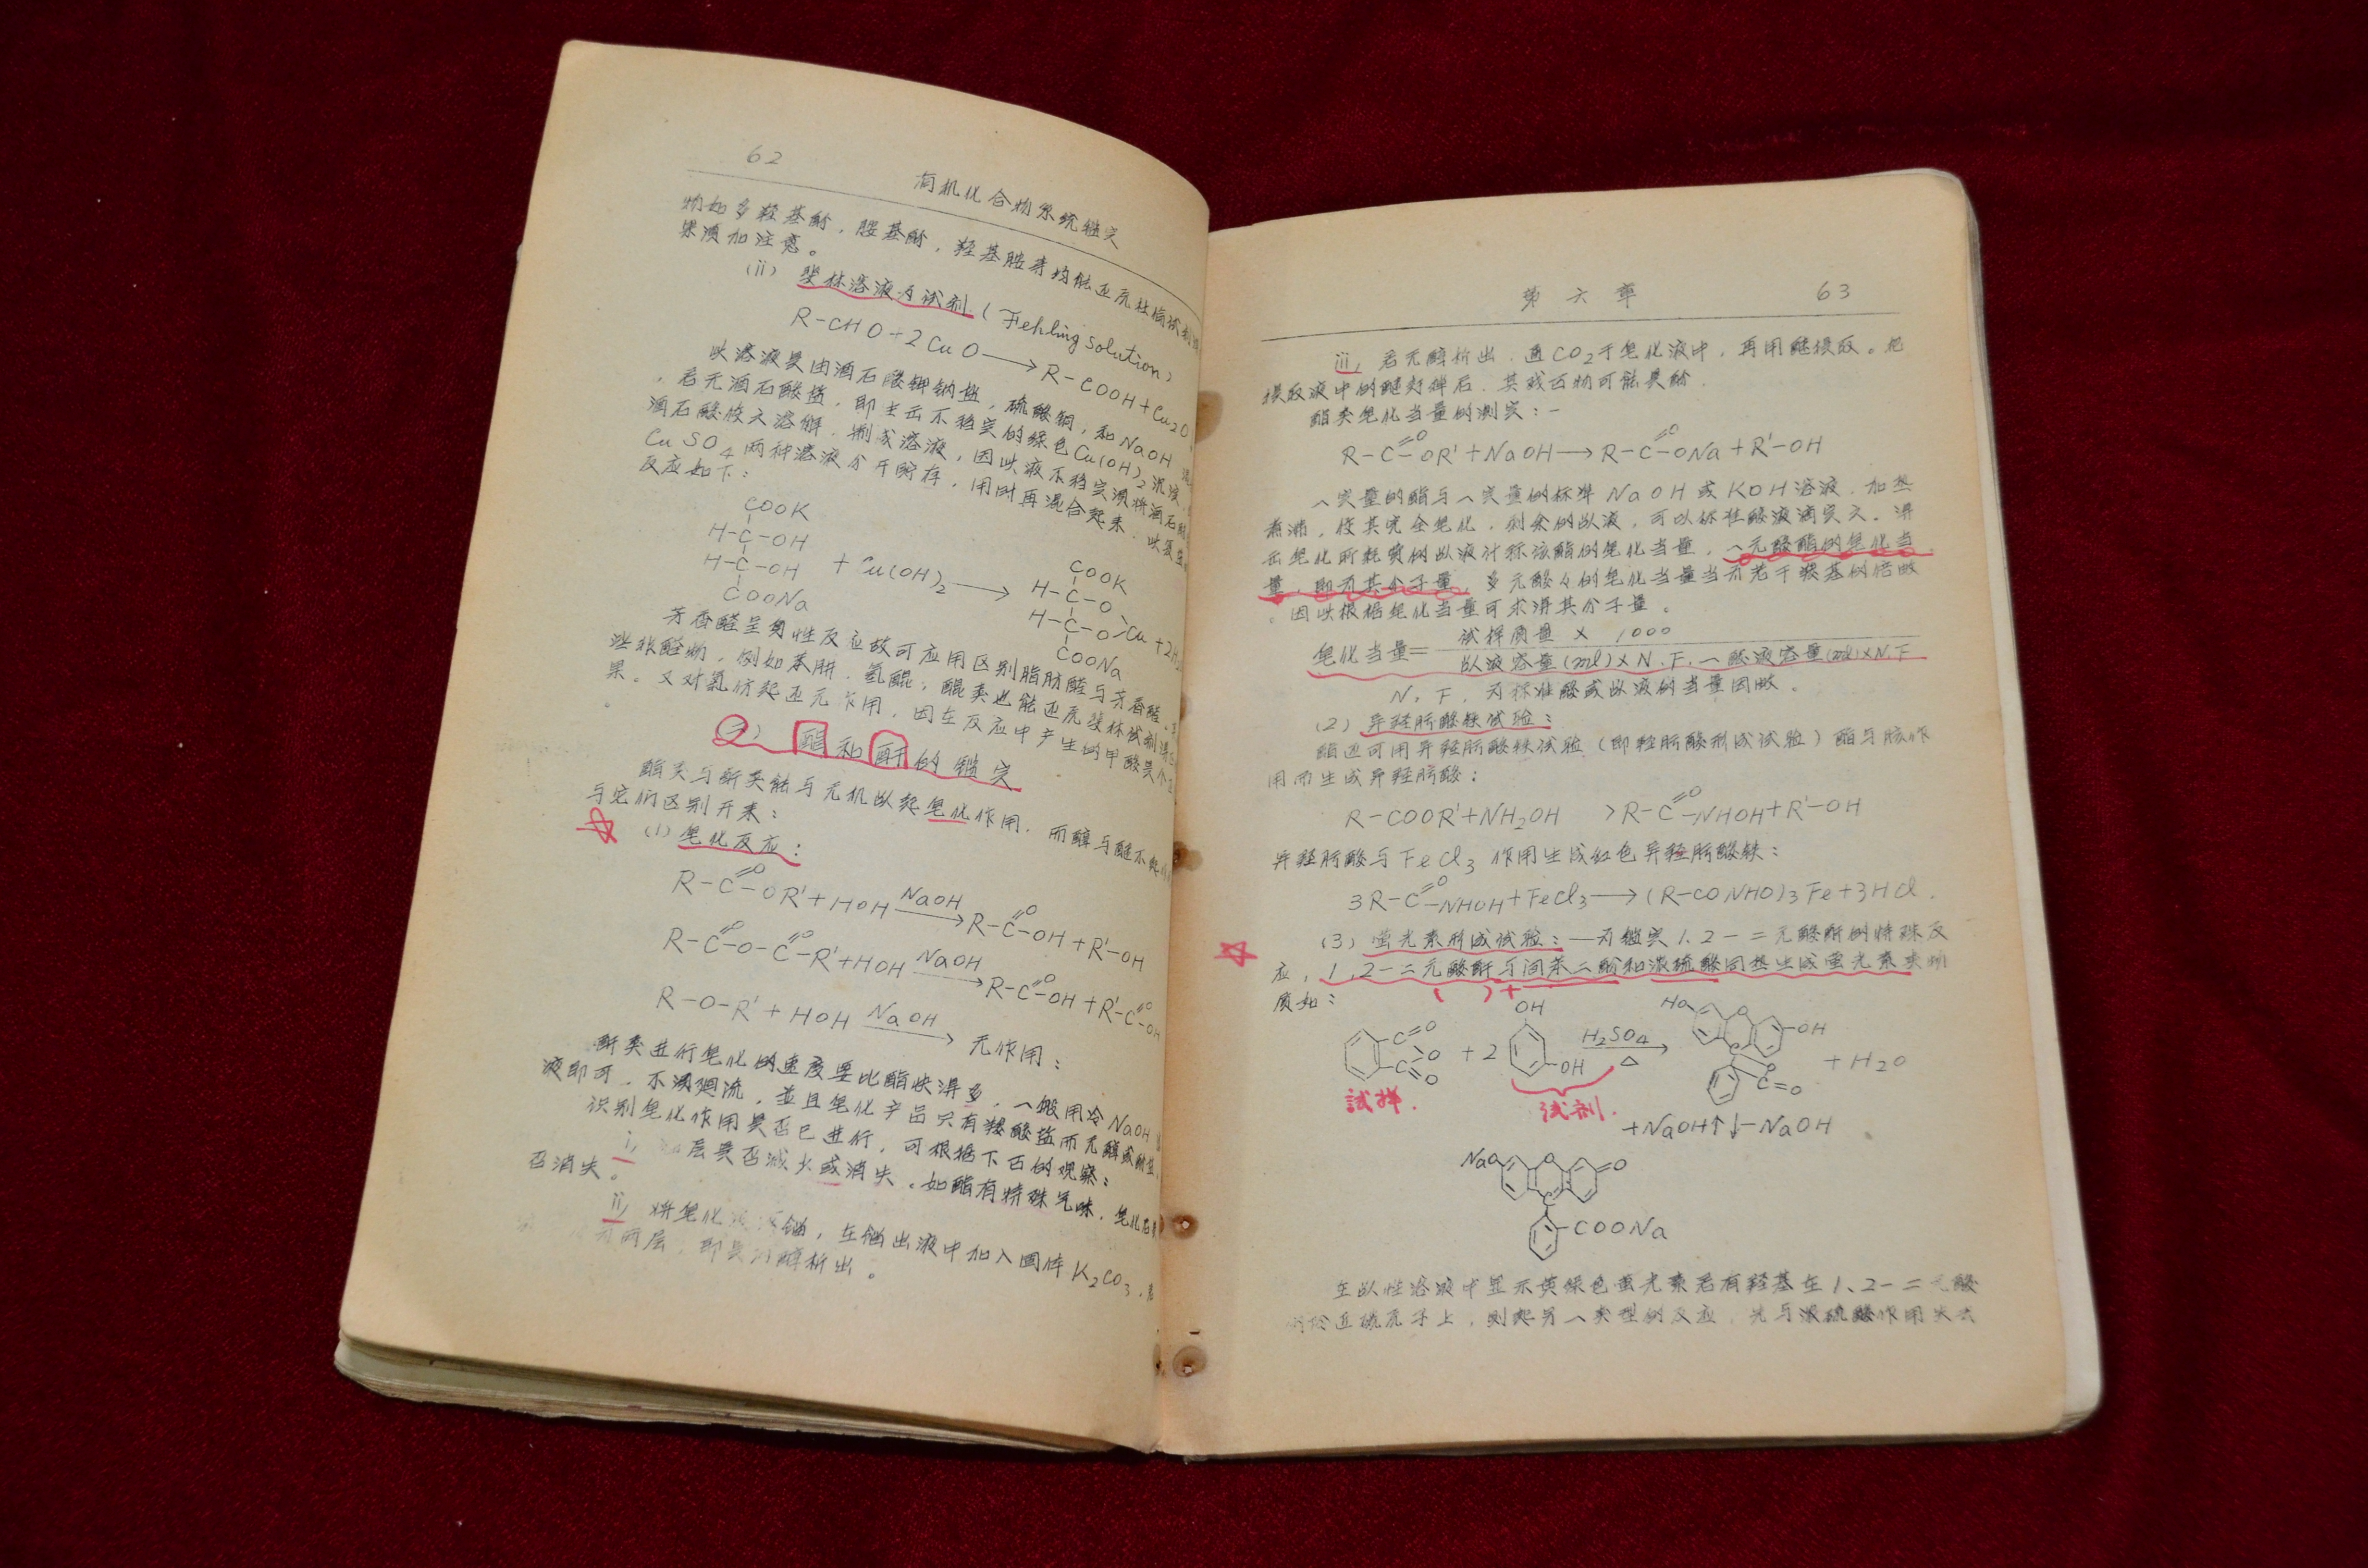 62
有机化合物系统鉴定
物如多羟基酚，胺基酚，羟基胺等均能还原杜伦试剂
果须加注意。
(ii) 斐林溶液为试剂 (Fehling solution)
R-CHO+2CuO⟶R-COOH+Cu₂O
此溶液是由酒石酸钾钠盐，硫酸铜，和NaOH
，若无酒石酸盐，即生出不稳定的绿色Cu(OH)₂沉淀，
酒石酸使之溶解，制成溶液，因此液不稳定须将酒石酸盐
CuSO₄两种溶液分开贮存，用时再混合起来，此
反应如下：
COOK
H-C-OH
H-C-OH
COONa
+Cu(OH)₂⟶
COOK
H-C-O
H-C-O Cu+2H₂
COONa
芳香醛呈负性反应故可应用区别脂肪醛与芳香醛，
些非醛物，例如苯肼，氢醌，醌类也能还原斐林试剂
果。又对氯仿起还元作用，因在反应中产生的甲酸
2) 酯和酐的鉴定
酯类与酐类能与无机𫵷起皂化作用，而醇与醚不起
与它们区别开来：
(1) 皂化反应：
R-C(=O)-OR'+HOH NaOH⟶R-C(=O)-OH+R'-OH
R-C(=O)-O-C(=O)-R'+HOH NaOH⟶R-C(=O)-OH+R'-C(=O)-OH
R-O-R'+HOH NaOH⟶无作用：
酐类进行皂化的速度要比酯快得多，一般用冷NaOH
液即可，不须廻流，並且皂化产品只有羧酸盐而无醇或酚
识别皂化作用是否已进行，可根据下面的观察：
i, 层是否减火或消失。如酯有特殊气味，皂化后
否消失。
ii, 将皂化 溜，在溜出液中加入固体K₂CO₃，若
两层，即是 醇析出。
第六章 63
iii, 若无醇析出，通CO₂于皂化液中，再用醚提取。把
提取液中的醚蒸掉后，其残留物可能是酚，
酯类皂化当量的测定：-
R-C(=O)-OR'+NaOH⟶R-C(=O)-ONa+R'-OH
一定量的酯与一定量的标準NaOH或KOH溶液，加热
煮沸，使其完全皂化，剩余的 液，可以标准酸液滴定之。得
出皂化所耗费的 液计称该酯的皂化当量，一元酸酯的皂化当
量，即为其分子量。多元酸々的皂化当量当为若干羧基的倍数
。因此根据皂化当量可求得其分子量。
皂化当量= 试样质量 × 1000
液容量(ml)×N.F.－酸液容量(ml)×N.F
N.F. 为标准酸或 液的当量因数。
(2) 异羟肟酸铁试验：
酯还可用异羟肟酸铁试验（即羟肟酸形成试验）酯与胲作
用而生成异羟肟酸：
R-COOR'+NH₂OH >R-C(=O)-NHOH+R'-OH
异羟肟酸与FeCl₃作用生成红色异羟肟酸铁：
3R-C(=O)-NHOH+FeCl₃⟶(R-CONHO)₃Fe+3HCl.
(3) 萤光素形成试验：—为鉴定1、2-二元酸酐的特殊反
应，1,2-二元酸酐与间苯二酚和浓硫酸同热生成萤光素类物
质如：
( )+
C=O O C=O +2 OH OH H₂SO₄ △⟶ HO O OH C O C=O +H₂O
試样. 试剂.
+NaOH↑↓-NaOH
NaO O =O
C
COONa
在 性溶液中显示黄绿色萤光素若有羟基在1、2-二元酸
邻近碳原子上，则起另一类型的反应，先与浓硫酸作用失去